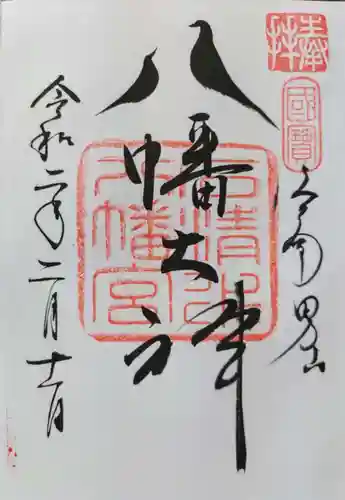 奉拝
國寶
男山
八幡大神
石清水
八幡宮
令和二年二月十一日